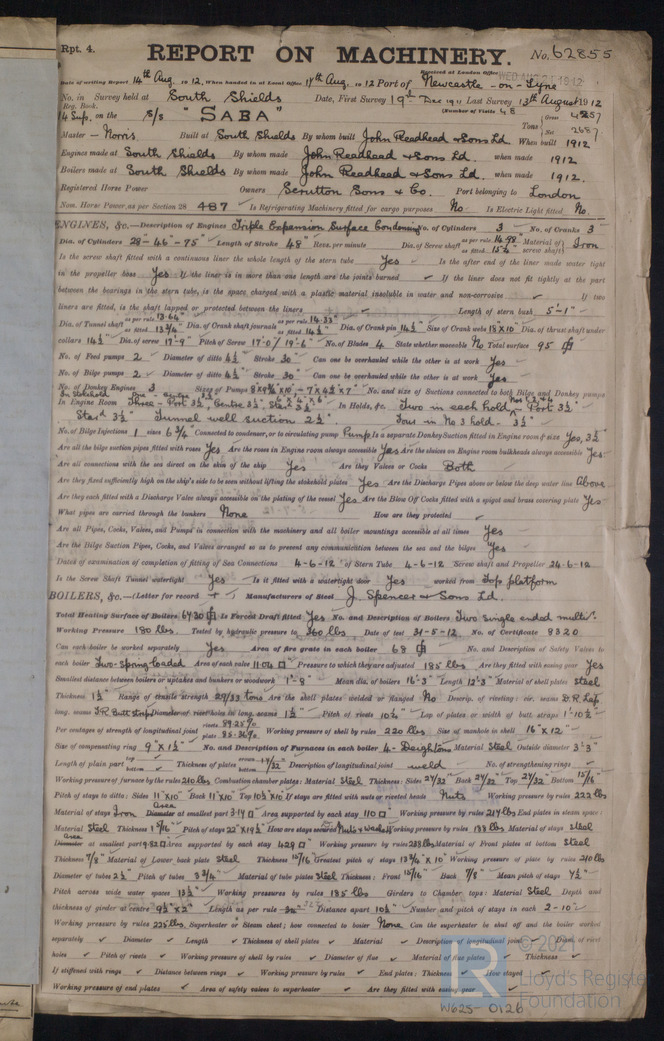 Rpt. 4. REPORT ON MACHINERY. No. 62855
Received at London Office WED. AUG 21 1912
Date of writing Report 14th Aug. 1912, When handed in at Local Office 17th Aug. 1912 Port of Newcastle-on-Tyne
No. in Survey held at South Shields Date, First Survey 19th Dec 1911 Last Survey 13th August 1912
Reg. Book. (Number of Visits 48
14 Sup. on the S/S "SABA" Tons Gross 4257 Net 2687
Master Norris Built at South Shields By whom built John Readhead & Sons Ld. When built 1912
Engines made at South Shields By whom made John Readhead & Sons Ld. when made 1912
Boilers made at South Shields By whom made John Readhead & Sons Ld. when made 1912.
Registered Horse Power Owners Scrutton Sons & Co. Port belonging to London
Nom. Horse Power as per Section 28 487 Is Refrigerating Machinery fitted for cargo purposes No Is Electric Light fitted No
ENGINES, &c.—Description of Engines Triple Expansion Surface Condensing No. of Cylinders 3 No. of Cranks 3
Dia. of Cylinders 28-46-75" Length of Stroke 48" Revs. per minute Dia. of Screw shaft as per rule 14.98 as fitted 15¼" Material of screw shaft Iron
Is the screw shaft fitted with a continuous liner the whole length of the stern tube Yes Is the after end of the liner made water tight
in the propeller boss Yes If the liner is in more than one length are the joints burned If the liner does not fit tightly at the part
between the bearings in the stern tube, is the space charged with a plastic material insoluble in water and non-corrosive If two
liners are fitted, is the shaft lapped or protected between the liners Length of stern bush 5'-1"
Dia. of Tunnel shaft as per rule 13.64" as fitted 13¾" Dia. of Crank shaft journals as per rule 14.33" as fitted 14½" Dia. of Crank pin 14½" Size of Crank webs 18×10" Dia. of thrust shaft under
collars 14½" Dia. of screw 17'-9" Pitch of Screw 17'-0"/19'-6" No. of Blades 4 State whether moveable No Total surface 95
No. of Feed pumps 2 Diameter of ditto 4½" Stroke 30" Can one be overhauled while the other is at work Yes
No. of Bilge pumps 2 Diameter of ditto 4½" Stroke 30" Can one be overhauled while the other is at work Yes
No. of Donkey Engines 3 Sizes of Pumps No. and size of Suctions connected to both Bilge and Donkey pumps
In Engine Room Three - Port 3½", Centre 3½", Star'd 3½" In Holds, &c. Two in each hold Port 3½"
Star'd 3½" Tunnel well suction 2½" Four in No 3 hold - 3½"
No. of Bilge Injections 1 sizes 6¾" Connected to condenser, or to circulating pump Pump Is a separate Donkey Suction fitted in Engine room & size Yes, 3½"
Are all the bilge suction pipes fitted with roses Yes Are the roses in Engine room always accessible Yes Are the sluices on Engine room bulkheads always accessible Yes
Are all connections with the sea direct on the skin of the ship Yes Are they Valves or Cocks Both
Are they fixed sufficiently high on the ship's side to be seen without lifting the stokehold plates Yes Are the Discharge Pipes above or below the deep water line Above
Are they each fitted with a Discharge Valve always accessible on the plating of the vessel Yes Are the Blow Off Cocks fitted with a spigot and brass covering plate Yes
What pipes are carried through the bunkers None How are they protected
Are all Pipes, Cocks, Valves, and Pumps in connection with the machinery and all boiler mountings accessible at all times Yes
Are the Bilge Suction Pipes, Cocks, and Valves arranged so as to prevent any communication between the sea and the bilges Yes
Dates of examination of completion of fitting of Sea Connections 4-6-12 of Stern Tube 4-6-12 Screw shaft and Propeller 24-6-12
Is the Screw Shaft Tunnel watertight Yes Is it fitted with a watertight door Yes worked from Top platform
BOILERS, &c.—(Letter for record r) Manufacturers of Steel J. Spencer & Sons Ld.
Total Heating Surface of Boilers 6430 Is Forced Draft fitted Yes No. and Description of Boilers Two single ended mult.
Working Pressure 180 lbs. Tested by hydraulic pressure to 360 lbs Date of test 31-5-12 No. of Certificate 8320
Can each boiler be worked separately Yes Area of fire grate in each boiler 68 No. and Description of Safety Valves to
each boiler Two Spring loaded Area of each valve 11.04 Pressure to which they are adjusted 185 lbs Are they fitted with easing gear Yes
Smallest distance between boilers or uptakes and bunkers or woodwork 1'-8" Mean dia. of boilers 16'-3" Length 12'-3" Material of shell plates steel
Thickness 1½" Range of tensile strength 29/33 tons Are the shell plates welded or flanged No Descrip. of riveting: cir. seams D.R. Lap
long. seams T.R. Butt Strap Diameter of rivet holes in long. seams 1½" Pitch of rivets 10½" Lap of plates or width of butt straps 1'-10½"
Per centages of strength of longitudinal joint rivets 89.25% plate 85.36% Working pressure of shell by rules 220 lbs Size of manhole in shell 16"×12"
Size of compensating ring 9"×1½" No. and Description of Furnaces in each boiler 4 Deightons Material Steel Outside diameter 3'-3"
Length of plain part top bottom Thickness of plates crown bottom 17/32" Description of longitudinal joint weld No. of strengthening rings
Working pressure of furnace by the rules 210 lbs Combustion chamber plates: Material Steel Thickness: Sides 21/32" Back 21/32" Top 21/32" Bottom 15/16"
Pitch of stays to ditto: Sides 11"×10" Back 11"×10" Top 10½×10" If stays are fitted with nuts or riveted heads Nuts Working pressure by rules 222 lbs
Material of stays Iron Area Diameter at smallest part 3.14 Area supported by each stay 110 Working pressure by rules 214 lbs End plates in steam space:
Material Steel Thickness 1 3/16" Pitch of stays 22"×19½" How are stays secured Nuts & Washers Working pressure by rules 188 lbs Material of stays steel
Area Diameter at smallest part 9.82 Area supported by each stay 429 Working pressure by rules 238 lbs Material of Front plates at bottom Steel
Thickness 7/8" Material of Lower back plate Steel Thickness 15/16" Greatest pitch of stays 13¾"×10" Working pressure of plate by rules 210 lbs
Diameter of tubes 2½" Pitch of tubes 3¾" Material of tube plates Steel Thickness: Front 15/16" Back 7/8" Mean pitch of stays 7½"
Pitch across wide water spaces 13½" Working pressures by rules 185 lbs Girders to Chamber tops: Material Steel Depth and
thickness of girder at centre 9½"×2" Length as per rule Distance apart 10½" Number and pitch of stays in each 2-10"
Working pressure by rules 225 lbs. Superheater or Steam chest; how connected to boiler None Can the superheater be shut off and the boiler worked
separately Diameter Length Thickness of shell plates Material Description of longitudinal joint Diam. of rivet
holes Pitch of rivets Working pressure of shell by rules Diameter of flue Material of flue plates Thickness
If stiffened with rings Distance between rings Working pressure by rules End plates: Thickness How stayed
Working pressure of end plates Area of safety valves to superheater Are they fitted with easing gear
© 2021
Lloyd's Register
Foundation
W625-0126